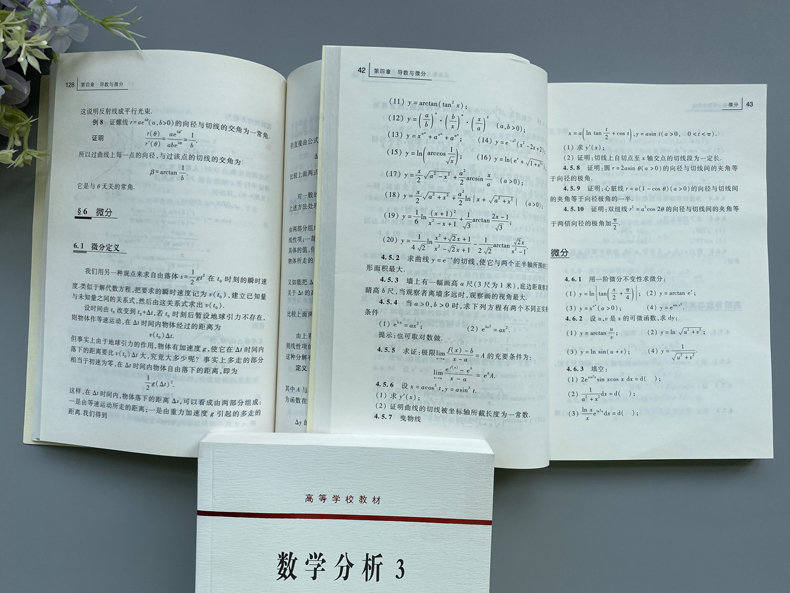 128 第四章 导数与微分
这说明反射线成平行光束.
例8 证螺线r=ae^{bθ}(a,b>0)的向径与切线的交角为一常角.
证明 r(θ)/r'(θ)=ae^{bθ}/abe^{bθ}=1/b.
所以过曲线上每一点的向径,与过该点的切线的交角为
β=arctan 1/b.
它是与θ无关的常角.
§6 微分
6.1 微分定义
我们用另一种观点来求自由落体s=1/2gt²在t₀时刻的瞬时速
度.类似于解代数方程,把要求的瞬时速度记为v(t₀),建立已知量
与未知量之间的关系式,然后由这关系式求出v(t₀).
设时间由t₀改变到t₀+Δt,若t₀时刻后暂设地球引力不存在,
则物体作等速运动,在Δt时间内物体经过的距离为
v(t₀)Δt.
但事实上由于地球引力作用,物体有加速度g,使它在Δt时间内
落下的距离要比v(t₀)Δt大,究竟大多少呢?事实上多走的部分
相当于初速为零,在Δt时间内物体自由落下的距离,即为
1/2g(Δt)²,
这样,在Δt时间内,物体落下的距离Δs,可以看成由两部分组成:
一是由等速运动所走的距离;一是由重力加速度g引起的多走的
距离.我们得到
42 第四章 导数与微分
(11) y=arctan(tan²x);
(13) y=x^{a^a}+a^{x^a}+a^{a^x};
(15) y=ln(arccos 1/√x);
(17) y=x/2√(a²-x²)+a²/2 arcsin x/a (a>0);
(18) y=x/2√(a²+x²)+a²/2 ln|x+√(a²+x²)| (a>0);
(19) y=1/6 ln (x+1)²/(x²-x+1)+1/√3 arctan (2x-1)/√3;
4.5.2 求曲线y=e^{-x}的切线,使它与两个正半轴所围
形面积最大.
4.5.3 墙上有一幅画高a尺(3尺为1米),底边距
睛高b尺,当观察者离墙多远时,观察画的视角最大.
4.5.4 当a>0,b>0时,求下列方程有两个不同正实
条件
提示:也可取对数做.
4.5.5 求证:极限lim (f(x)-b)/(x-a)=A的充要条件为:
lim (e^{f(x)}-e^b)/(x-a)=e^bA.
4.5.6 设x=acos³t,y=asin³t.
(1) 求y'(x);
(2) 证明曲线的切线被坐标轴所截长度为一常数.
4.5.7 变物线
微分 43
x=a(ln tan t/2+cos t),y=asin t(a>0, 0<t<π).
(1) 求y'(x);
(2) 证明:切线上自切点至x轴交点的切线段为一定长.
4.5.8 证明:圆r=2asin θ(a>0)的向径与切线间的夹角等
于向径的极角.
4.5.9 证明:心脏线r=a(1-cos θ)(a>0)的向径与切线间
的夹角等于向径极角的一半.
4.5.10 证明:双纽线r²=a²cos2θ的向径与切线间的夹角等
于两倍向径的极角加π/2.
微分
4.6.1 用一阶微分不变性求微分:
(1) y=ln|tan(x/2+π/4)|; (2) y=arctan e^x;
4.6.2 设u,v是x的可微函数,求dy:
(1) y=arctan u/v; (2) y=ln √(u²+v²);
(3) y=ln sin(u+v); (4) y=1/√(u²+v²).
4.6.3 填空:
(2) 1/(a²+x²)dx=d( );
高等学校教材
数学分析 3